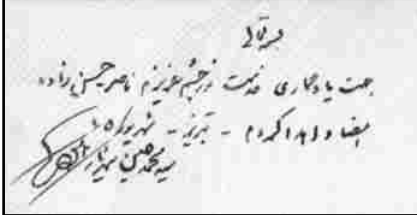 بسمه تعالی
جهت یادگاری خدمت نورچشم عزیزم ناصر حسن زاده
امضا و اهدا کردم - تبریز - شهریور ۶۵
سید محمد حسین شهریار